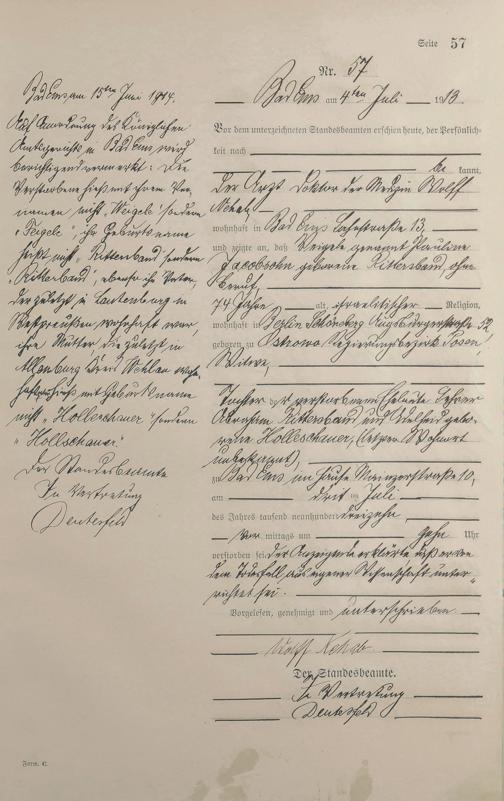 Seite 57
Nr. 57
Bad Ems am 4ten Juli 1913.
Vor dem unterzeichneten Standesbeamten erschien heute, der Persönlich-
keit nach
be kannt,
der Arzt Doktor der Medizin Wolff
wohnhaft in Bad Ems Lahnstraße 13,
und zeigte an, daß Weigele genannt Pauline
Jacobsohn geborene Rittersband, ohne
Beruf,
74 Jahre alt, israelitischer Religion,
wohnhaft in Berlin Schöneberg Augsburgerstraße 52,
geboren zu Ostrowo Regierungsbezirk Posen,
Witwe,
Tochter der verstorbenen Eheleute Lehrer
Abraham Rittersband und Adelheid gebo-
rene Holleschauer, (letzter Wohnort
unbekannt)
zu Bad Ems, im Hause Mainzerstraße 10,
am drit ten Juli
des Jahres tausend neunhundert dreizehn
vor mittags um zehn Uhr
verstorben sei. Der Anzeigende erklärte daß er von
dem Todesfall aus eigener Wissenschaft unter-
richtet sei.
Vorgelesen, genehmigt und unterschrieben
Wolff
Der Standesbeamte.
In Vertretung
Deutesfeld
Bad Ems am 15ten Juni 1914.
Auf Anordnung des Königlichen
Amtsgerichts in Bad Ems wird
berichtigend vermerkt: Die
Verstorbene hieß mit ihrem Vor-
namen nicht "Weigele" sondern
"Feigele" ihr Geburtsname
ist nicht "Rittersband" sondern
"Ritterband", ebenso ihr Vater,
der zuletzt in Lautenburg in
Westpreußen wohnhaft war,
ihre Mutter die zuletzt in
Allenburg Kreis Wehlau wohn-
haft hieß mit Geburtsname
nicht "Holleschauer" sondern
"Hollschauer."
Der Standesbeamte
In Vertretung
Deutesfeld
Form. C.